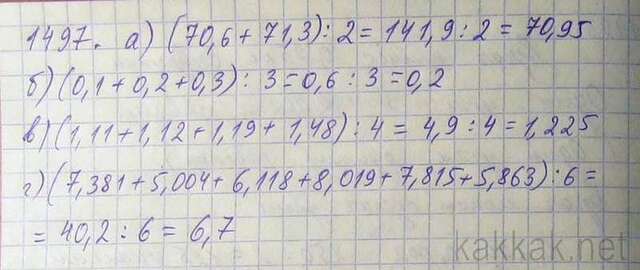 1497. а) (70,6 + 71,3) : 2 = 141,9 : 2 = 70,95
б) (0,1 + 0,2 + 0,3) : 3 = 0,6 : 3 = 0,2
в) (1,11 + 1,12 + 1,19 + 1,48) : 4 = 4,9 : 4 = 1,225
г) (7,381 + 5,004 + 6,118 + 8,019 + 7,815 + 5,863) : 6 =
= 40,2 : 6 = 6,7
kakkak.net